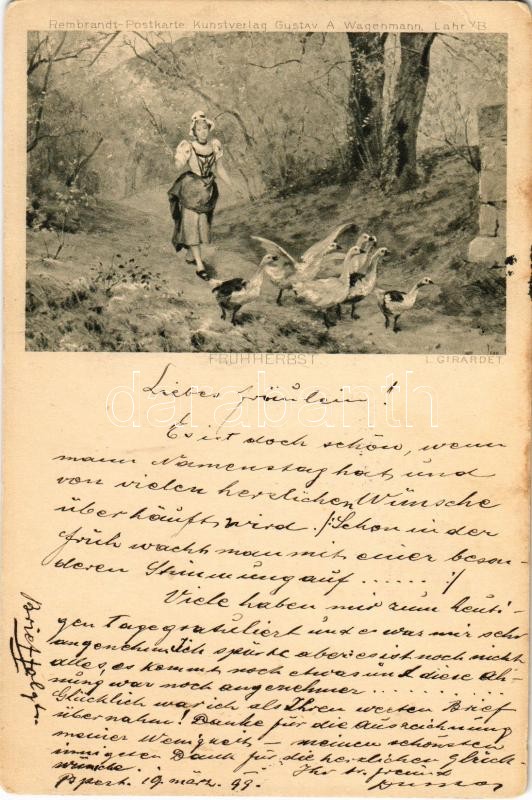 Rembrandt-Postkarte. Kunstverlag Gustav A. Wagenmann, Lahr i/B
FRÜHHERBST
L. GIRARDET
darabanth
Liebes Fräulein!
Es ist doch schön, wenn
mann Namenstag hat und
von vielen herzlichen Wünsche
überhäuft wird. /: Schon in der
früh wacht man mit einer beson-
deren Stimmung auf ...... :/
Viele haben mir zum heuti-
gen Tage gratuliert und es was mir sehr
angenehm. Ich spürte aber es ist noch nicht
alles, es kommt noch etwas und diese Ah-
nung war noch angenehmer ..........
Glücklich war ich als Ihren werten Brief
übernahm! Danke für die Auszeichnung
meiner Wenigkeit – meinen schönsten
innigsten Dank für die herzlichen Glück-
wünsche. – Ihr tr. freund
Bpest. 19. märz. 99.
Brief folgt.